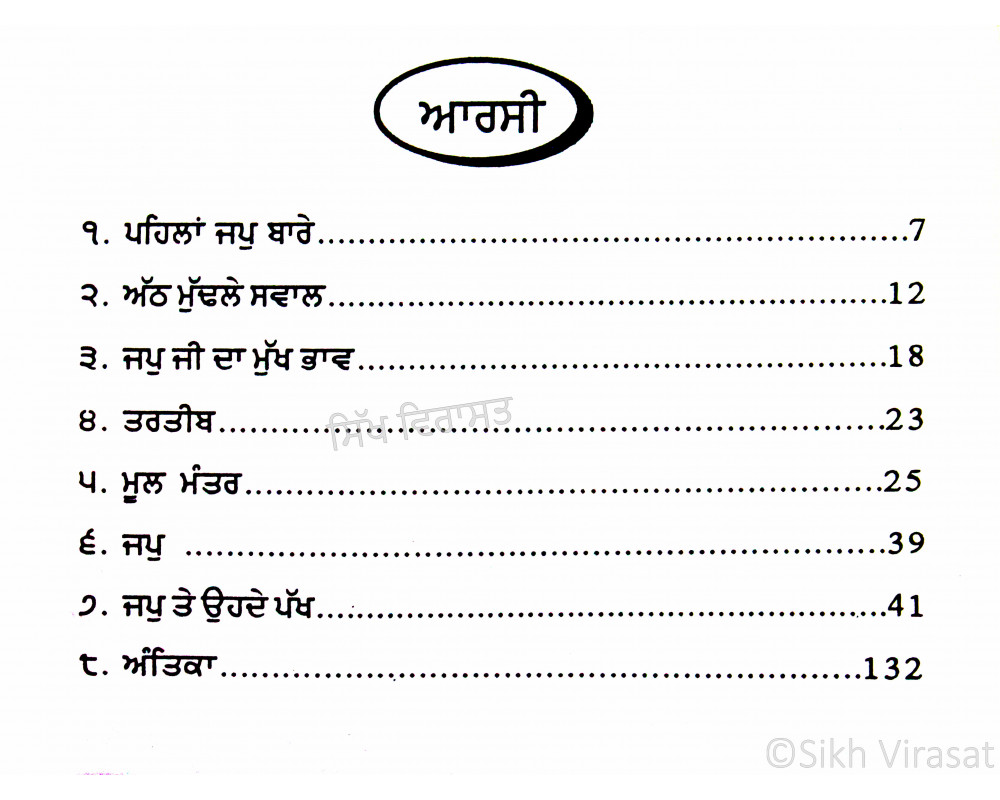 ਆਰਸੀ
੧. ਪਹਿਲਾਂ ਜਪੁ ਬਾਰੇ............................................................7
੨. ਅੱਠ ਮੁੱਢਲੇ ਸਵਾਲ.........................................................12
੩. ਜਪੁ ਜੀ ਦਾ ਮੁੱਖ ਭਾਵ......................................................18
੪. ਤਰਤੀਬ....................................................................23
ਸਿੱਖ ਵਿਰਾਸਤ
੫. ਮੂਲ ਮੰਤਰ.................................................................25
੬. ਜਪੁ .......................................................................39
੭. ਜਪੁ ਤੇ ਉਹਦੇ ਪੱਖ..........................................................41
੮. ਅੰਤਿਕਾ..................................................................132
©Sikh Virasat